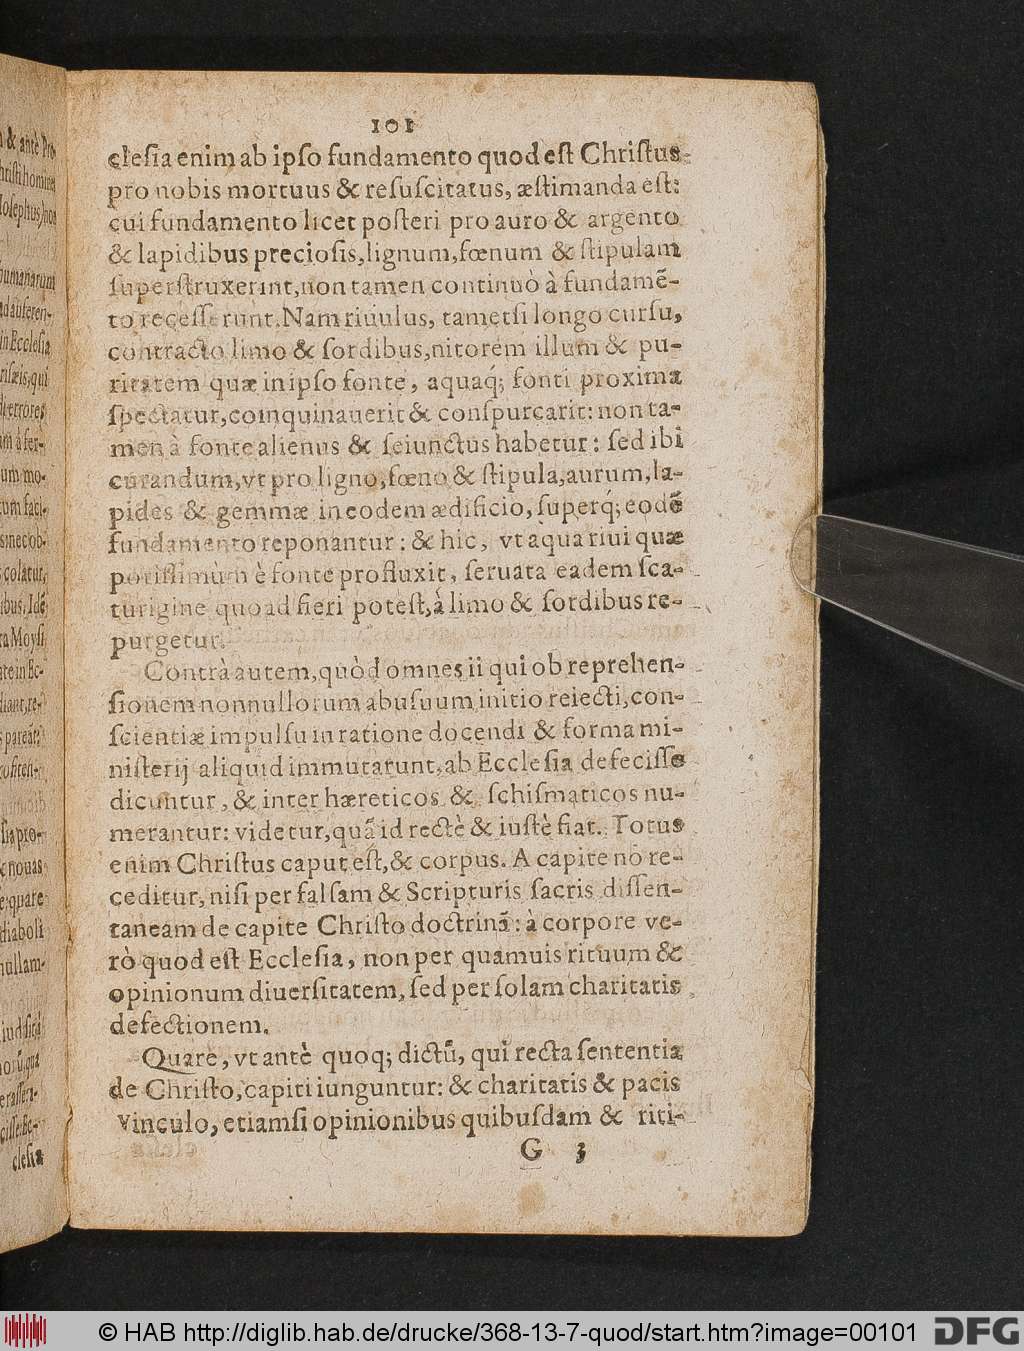 101
clesia enim ab ipso fundamento quod est Christus
pro nobis mortuus & resuscitatus, æstimanda est:
cui fundamento licet posteri pro auro & argento
& lapidibus preciosis, lignum, fœnum & stipulam
superstruxerint, non tamen continuò à fundamẽ-
to recesserunt. Nam riuulus, tametsi longo cursu,
contracto limo & sordibus, nitorem illum & pu-
ritatem quæ in ipso fonte, aquaq́; fonti proxima
spectatur, coinquinauerit & conspurcarit: non ta-
men à fonte alienus & seiunctus habetur: sed ibi
curandum, vt pro ligno, fœno & stipula, aurum, la-
pides & gemmæ in eodem ædificio, superq́; eodẽ
fundamento reponantur: & hic, vt aqua riui quæ
potissimùm è fonte profluxit, seruata eadem sca-
turigine quoad fieri potest, à limo & sordibus re-
purgetur.
Contrà autem, quòd omnes ii qui ob reprehen-
sionem nonnullorum abusuum initio reiecti, con-
scientiæ impulsu in ratione docendi & forma mi-
nisterij aliquid immutarunt, ab Ecclesia defecisse
dicuntur, & inter hæreticos & schismaticos nu-
merantur: videtur, quã id rectè & iustè fiat. Totus
enim Christus caput est, & corpus. A capite nō re-
ceditur, nisi per falsam & Scripturis sacris dissen-
taneam de capite Christo doctrinã: à corpore ve-
rò quod est Ecclesia, non per quamuis rituum &
opinionum diuersitatem, sed per solam charitatis
defectionem.
Quare, vt antè quoq; dictũ, qui recta sententia
de Christo, capiti iunguntur: & charitatis & pacis
vinculo, etiamsi opinionibus quibusdam & riti-
G 3
© HAB http://diglib.hab.de/drucke/368-13-7-quod/start.htm?image=00101
DFG